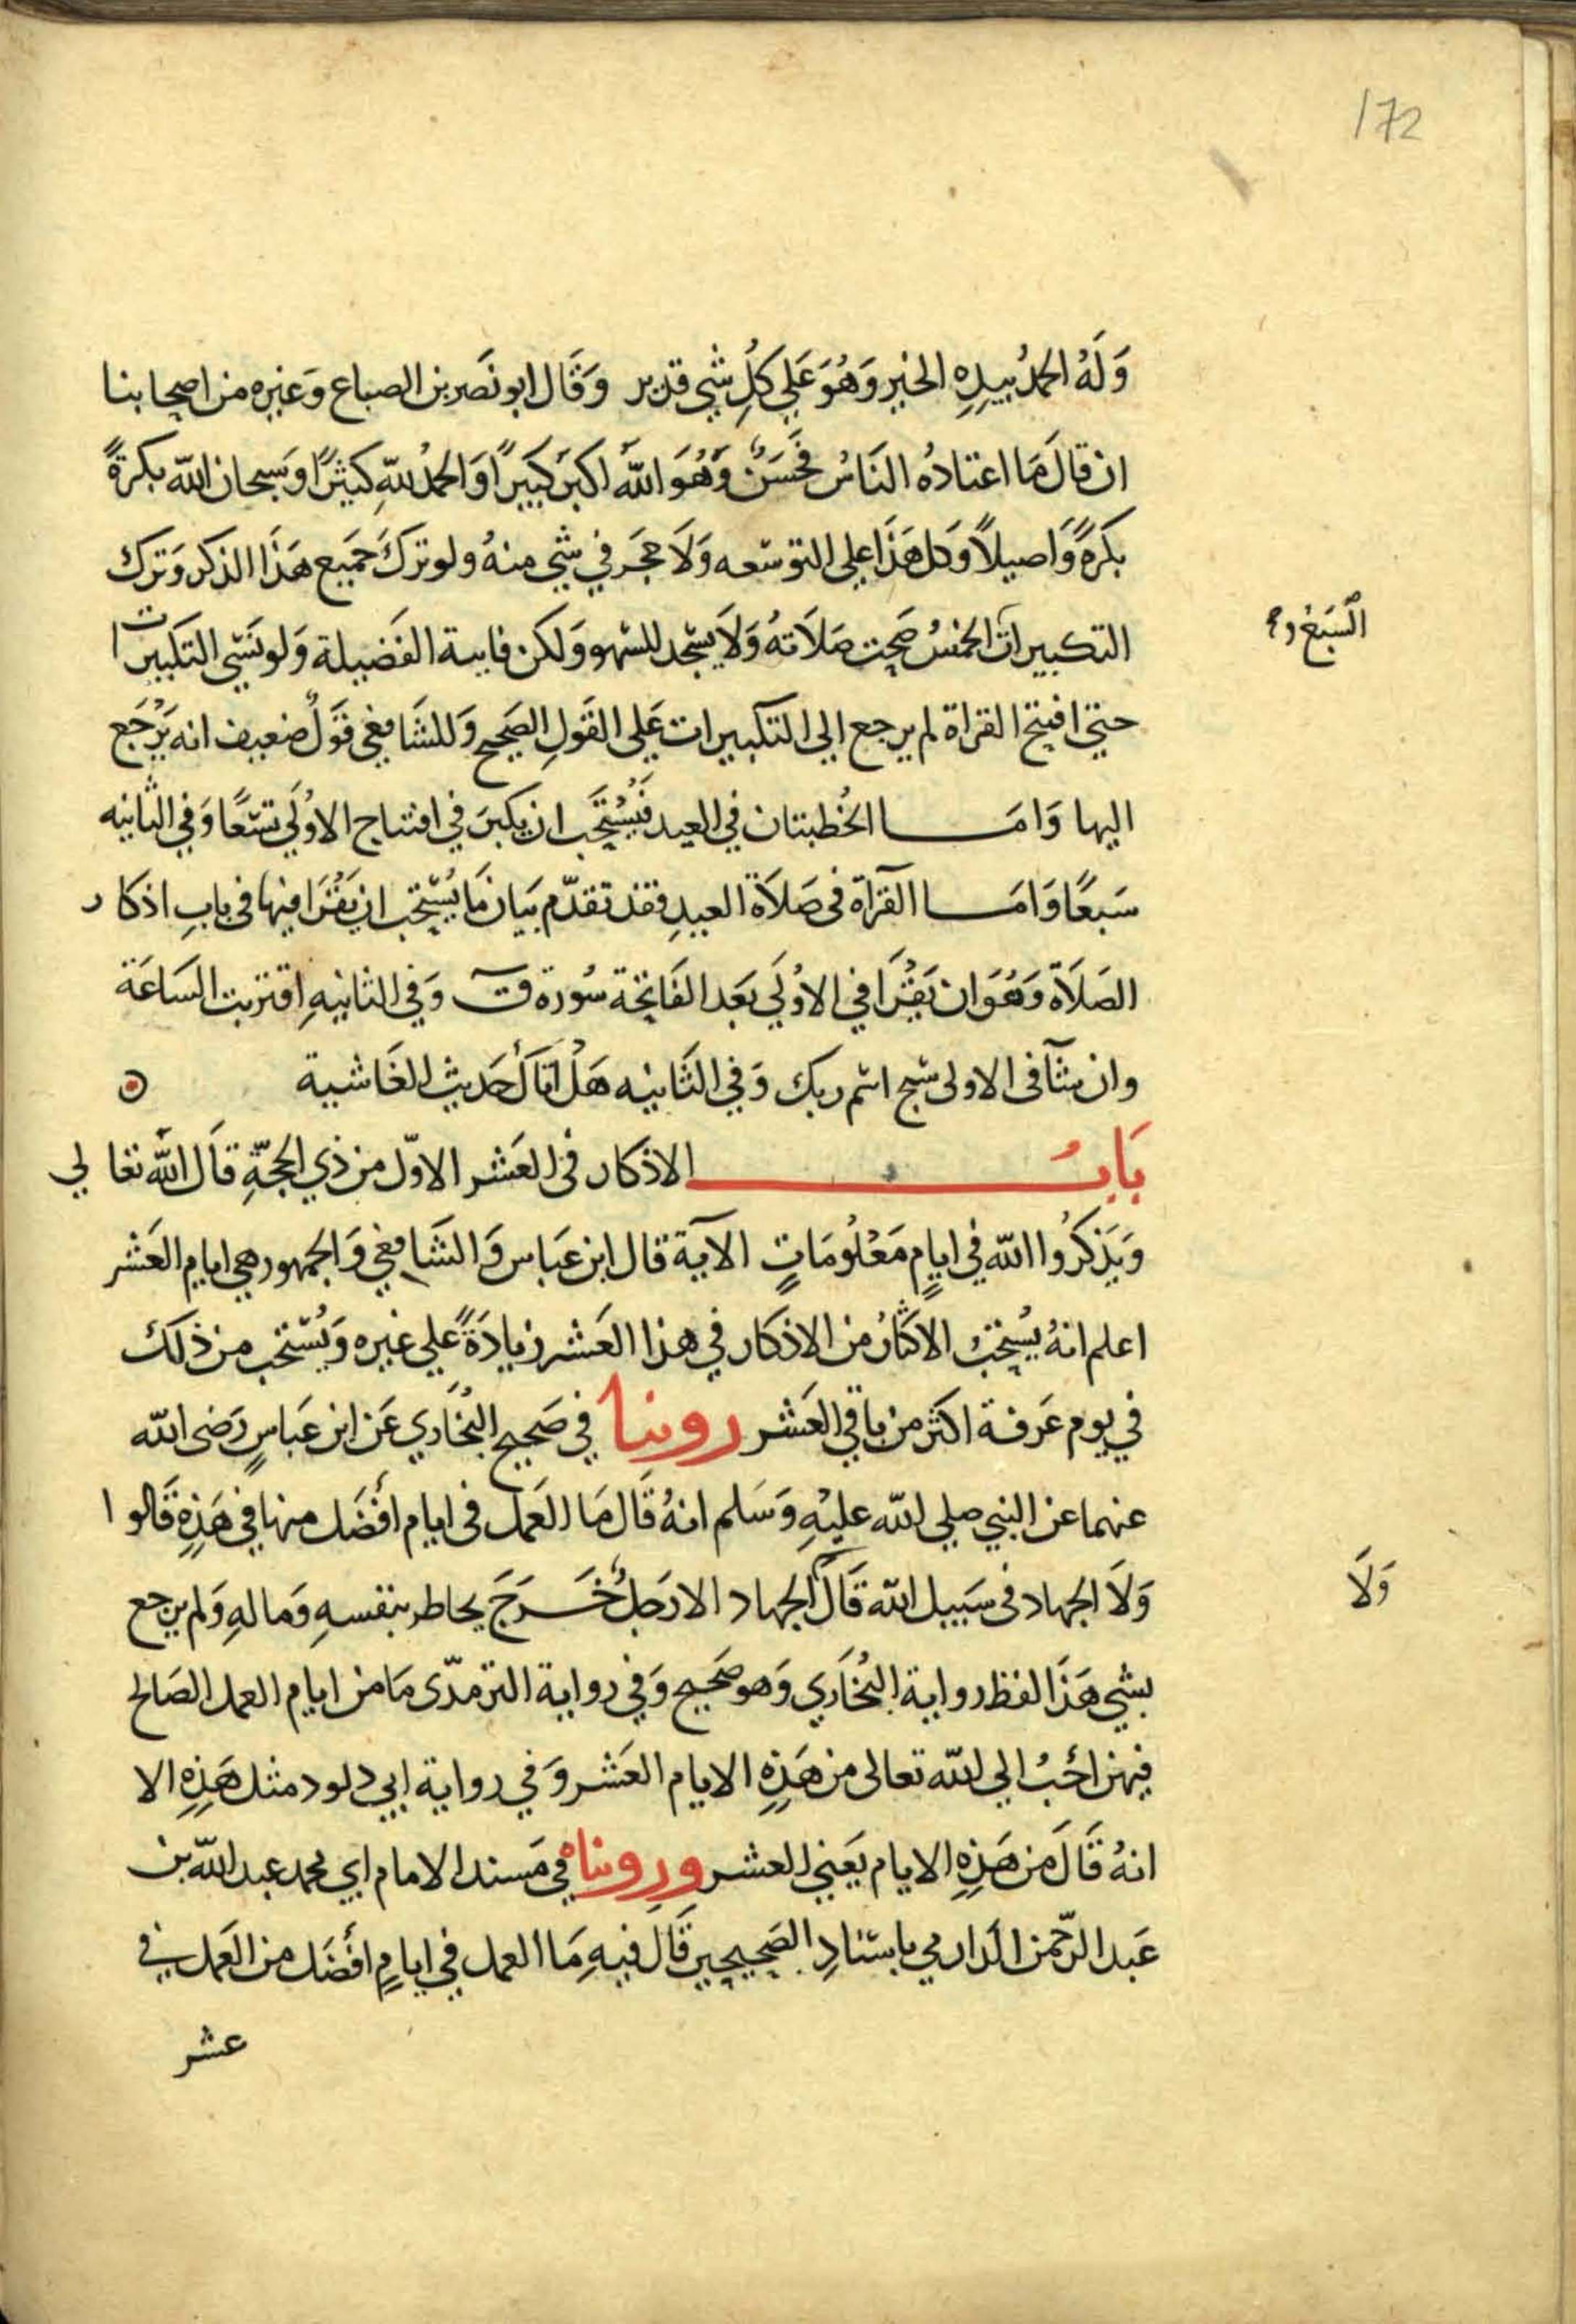 172
وَلَهُ الحمدُ بيدِهِ الخير وَهُوَ عَلي كلِ شي قدير وَقَال ابو نَصر بن الصباع وَغيره من اصحابنا
ان قالَ مَا اعتادهُ النَاسُ فحَسَنٌ وَهُوَ اللهُ اكبرُ كبيرًا وَالحمدُ للهِ كثيرًا وَسبحان الله بكرةً
بكرةً وَاصيلاً وَكل هَذَا علي التوسّعه وَلَا حجَر في شي منهُ ولو تركَ جَميع هَذَا الذكر وَترك
التكبيرات الخمسُ صحت صَلَاتهُ وَلَا يسْجد للسّهو وَلكن فاتته الفَضيلة وَلو نَسي التكبيرات
السَبع و
حتي افتتح القراة لم يرجع الي التكبيرات عَلي القَولِ الصَحيح وَللشَافعي قَولٌ ضعيف انه يَرْجَع
اليها وَامَا الخُطبتان في العيد فَيُسْتَحَب ان يكبرَ في افتتاح الاوُلَي تسْعًا وَفي الثانيه
سَبعًا وَامَا القرآة في صَلَاة العيدِ فقد تقدّم بيَان مَا يُسْتحب ان يَقْرَا فيها في بابِ اذكار
الصَلَاة وَهُوَ ان يَقْرَا في الاوُلَي بَعَد الفَاتحة سُورة قٓ وَفي الثانيهِ اقتربت السَاعَة
وان شآ في الاولى سبح اسْم ربك وَفي الثَانيه هَلْ اتَاكَ حَديث الغَاشية
بَابُ الاذكار في العَشر الاوّل من ذي الحجّةِ قاَل اللهُ تعالي
وَيَذكرُوا الله في ايامٍ مَعْلُومَاتٍ الآية قال ابن عَباس وَالشَافعي وَالجمهور هي ايام العَشر
اعلم انهُ يُستحَبُ الاكثارُ من الاذكار في هذا العَشر زيادَةً علي غيره وَيُسْتحب من ذلك
في يوم عَرفة اكثر من باقي العَشر روينا في صَحيح البُخَاري عَن ابن عَباسٍ رَضى الله
عنهما عن النبي صلي الله عليْهِ وَسَلم انهُ قَال مَا العَمل في ايام أفضَل منها في هَذِهِ قَالوا
وَلَا الجهاد في سَبيل الله قَال الجهاد الا رَجلٌ خَرَجَ يخاطر بنفسهِ وَمالهِ وَلم يرجع
وَلَا
بشي هَذَا لفظ رواية البُخَاري وَهو صَحيح وَفي رواية الترمذّى مَا من ايام العمل الصَالح
فيهن احَبُ الي الله تعالى من هَذِهِ الايام العَشر وَفي رواية ابي داود مثل هَذِهِ الا
انهُ قَالَ من هَذِهِ الايام يَعَني العشر وروِيناهُ في مَسند الامام ابي محمد عبد الله بن
عَبد الرّحمن الدارمي باسنادِ الصَحيحين قَال فيهِ مَا العمل في ايامٍ أفضَل من العَمل في
عشر